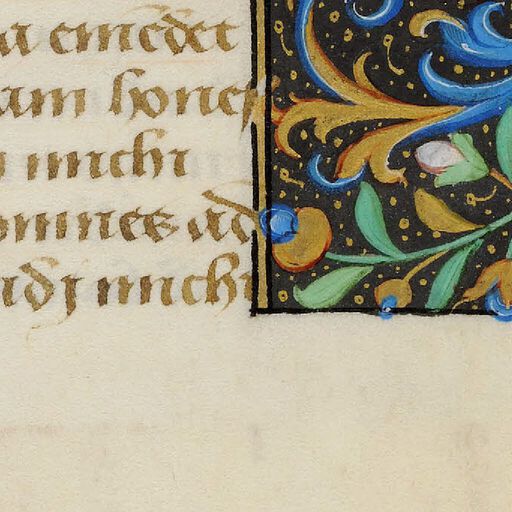 a emēdet
am hones
michi
omnes ad
adj michi